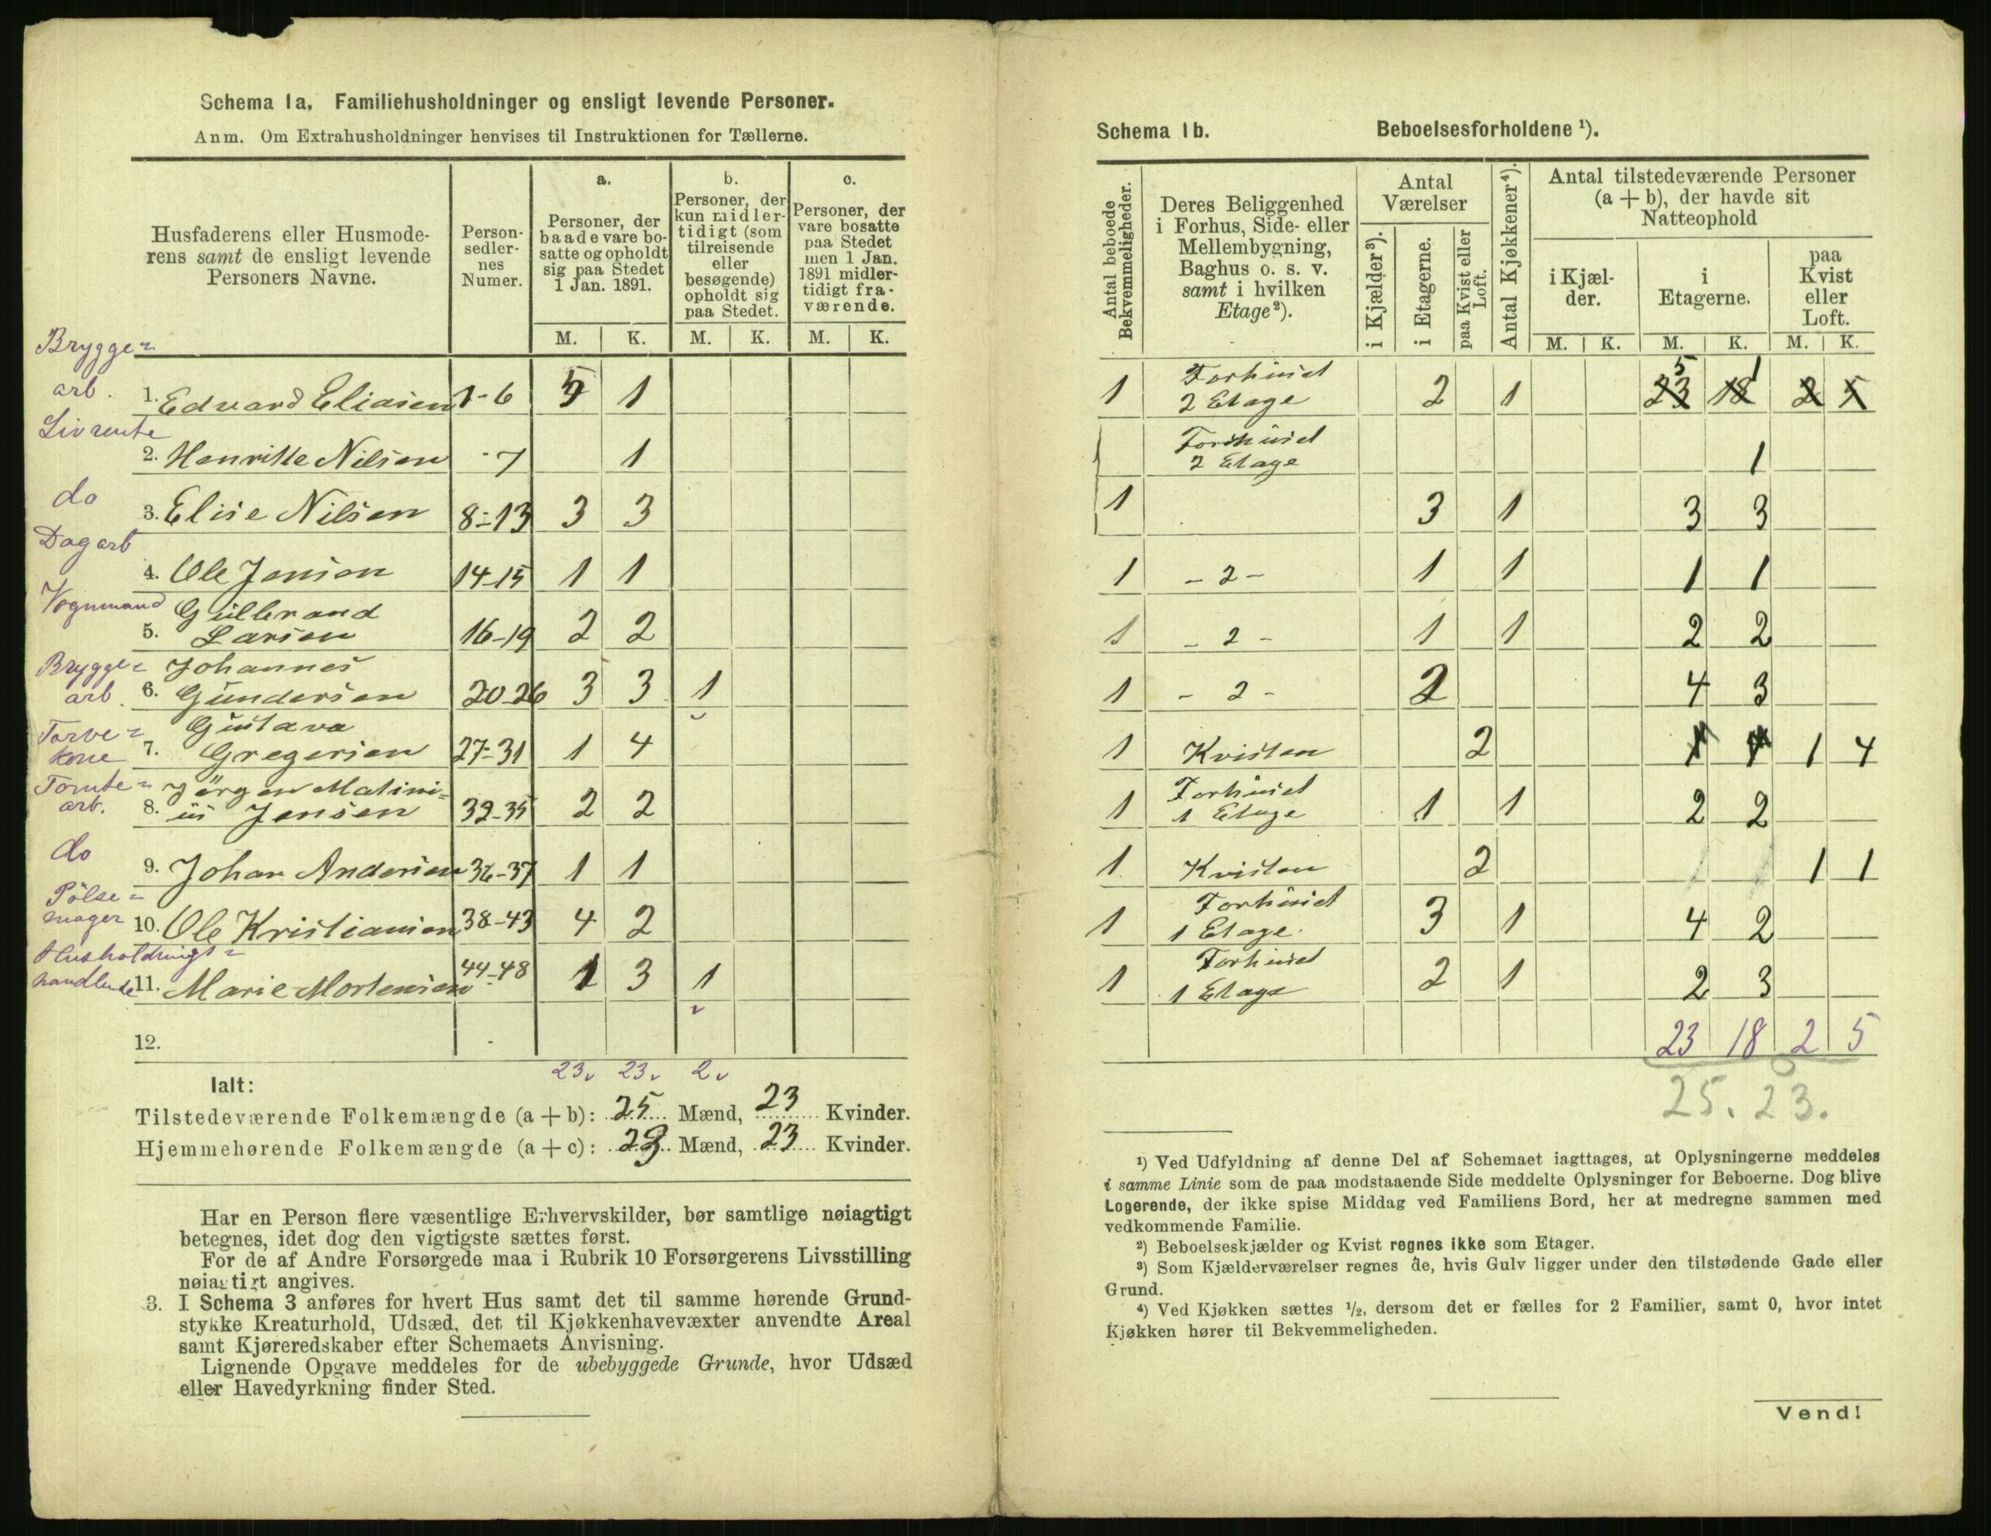 Schema 1a. Familiehusholdninger og ensligt levende Personer.
Anm. Om Extrahusholdninger henvises til Instruktionen for Tællerne.
Husfaderens eller Husmode-
rens samt de ensligt levende
Personers Navne.
Person-
sedler-
nes
Numer.
a.
Personer, der
baade vare bo-
satte og opholdt
sig paa Stedet
1 Jan. 1891.
b.
Personer, der
kun midler-
tidigt (som
tilreisende
eller
besøgende)
opholdt sig
paa Stedet.
c.
Personer, der
vare bosatte
paa Stedet
men 1 Jan.
1891 midler-
tidigt fra-
værende.
M. K. M. K. M. K.
Brygge=
arb. 1. Edvard Eliasen 1-6 5 1
Livrente
2. Henritte Nilsen -7 1
do
3. Elise Nilsen 8-13 3 3
Dagarb
4. Ole Jensen 14-15 1 1
Vognmand Gulbrand
5. Larsen 16-19 2 2
Brygge= Johannes
arb. 6. Gundersen 20-26 3 3 1
Torve= Gustava
kone 7. Gregersen 27-31 1 4
Tomte= Jörgen Matini=
arb. 8. us Jensen 32-35 2 2
do
9. Johan Andersen 36-37 1 1
Pölse=
mager 10. Ole Kristiansen 38-43 4 2
Husholdnings=
handlende 11. Marie Mortensen 44-48 1 3 1
12.
23 23 2
Ialt:
Tilstedeværende Folkemængde (a + b): 25 Mænd, 23 Kvinder.
Hjemmehørende Folkemængde (a + c): 23 Mænd, 23 Kvinder.
Har en Person flere væsentlige Erhvervskilder, bør samtlige nøiagtigt
betegnes, idet dog den vigtigste sættes først.
For de af Andre Forsørgede maa i Rubrik 10 Forsørgerens Livsstilling
nøiagtigt angives.
3. I Schema 3 anføres for hvert Hus samt det til samme hørende Grund-
stykke Kreaturhold, Udsæd, det til Kjøkkenhavevæxter anvendte Areal
samt Kjøreredskaber efter Schemaets Anvisning.
Lignende Opgave meddeles for de ubebyggede Grunde, hvor Udsæd
eller Havedyrkning finder Sted.
Schema 1b. Beboelsesforholdene ¹).
Antal beboede
Bekvemmeligheder.
Deres Beliggenhed
i Forhus, Side- eller
Mellembygning,
Baghus o. s. v.
samt i hvilken
Etage²).
Antal
Værelser
i Kjælder³).
i Etagerne.
paa Kvist eller
Loft.
Antal Kjøkkener⁴).
Antal tilstedeværende Personer
(a + b), der havde sit
Natteophold
i Kjæl-
der.
i
Etagerne.
paa
Kvist
eller
Loft.
M. K. M. K. M. K.
Forhuset 5 1
1 2 Etage 2 1 23 18 2 5
Forhuset
2 Etage 1
1 3 1 3 3
1 - 2 - 1 1 1 1
1 - 2 - 1 1 2 2
1 - 2 - 2 4 3
1 Kvisten 2 1 4 1 4
Forhuset
1 1 Etage 1 1 2 2
1 Kvisten 2 1 1 1 1
Forhuset
1 1 Etage. 3 1 4 2
Forhuset
1 1 Etage 2 1 2 3
23 18 2 5
25. 23.
¹) Ved Udfyldning af denne Del af Schemaet iagttages, at Oplysningerne meddeles
i samme Linie som de paa modstaaende Side meddelte Oplysninger for Beboerne. Dog blive
Logerende, der ikke spise Middag ved Familiens Bord, her at medregne sammen med
vedkommende Familie.
²) Beboelseskjælder og Kvist regnes ikke som Etager.
³) Som Kjælderværelser regnes de, hvis Gulv ligger under den tilstødende Gade eller
Grund.
⁴) Ved Kjøkken sættes ½, dersom det er fælles for 2 Familier, samt 0, hvor intet
Kjøkken hører til Bekvemmeligheden.
Vend!